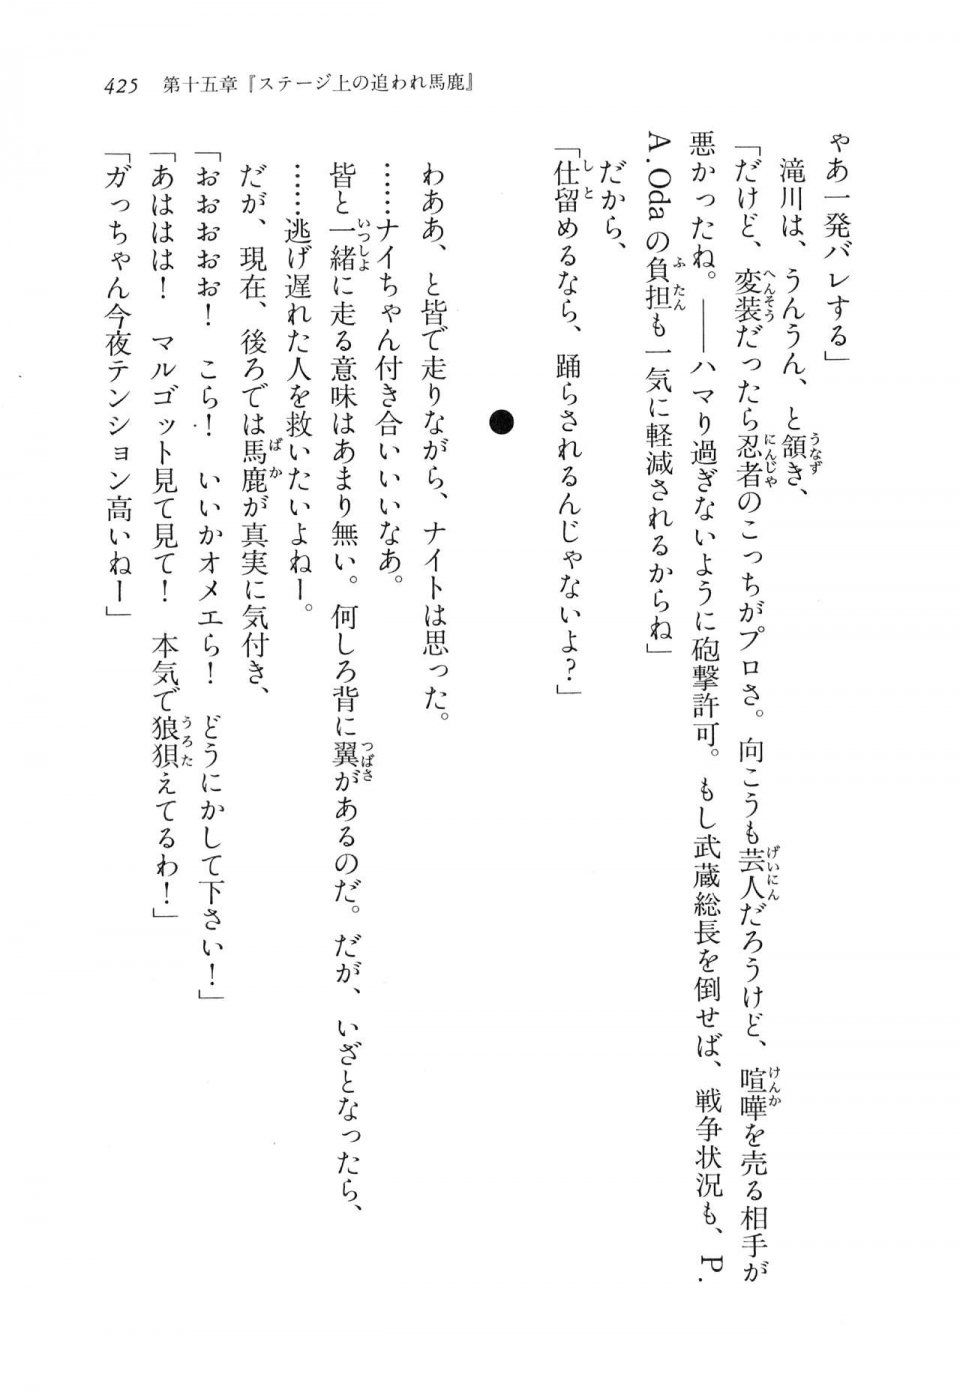 425 第十五章『ステージ上の追われ馬鹿』
ゃあ一発バレする」
滝川は、うんうん、と頷き、
「だけど、変装だったら忍者のこっちがプロさ。向こうも芸人だろうけど、喧嘩を売る相手が
悪かったね。――ハマり過ぎないように砲撃許可。もし武蔵総長を倒せば、戦争状況も、P.
A. Odaの負担も一気に軽減されるからね」
だから、
「仕留めるなら、踊らされるんじゃないよ?」
●
わああ、と皆で走りながら、ナイトは思った。
……ナイちゃん付き合いいいなあ。
皆と一緒に走る意味はあまり無い。何しろ背に翼があるのだ。だが、いざとなったら、
……逃げ遅れた人を救いたいよねー。
だが、現在、後ろでは馬鹿が真実に気付き、
「おおおおお! こら! いいかオメエら! どうにかして下さい!」
「あははは! マルゴット見て見て! 本気で狼狽えてるわ!」
「ガっちゃん今夜テンション高いねー」